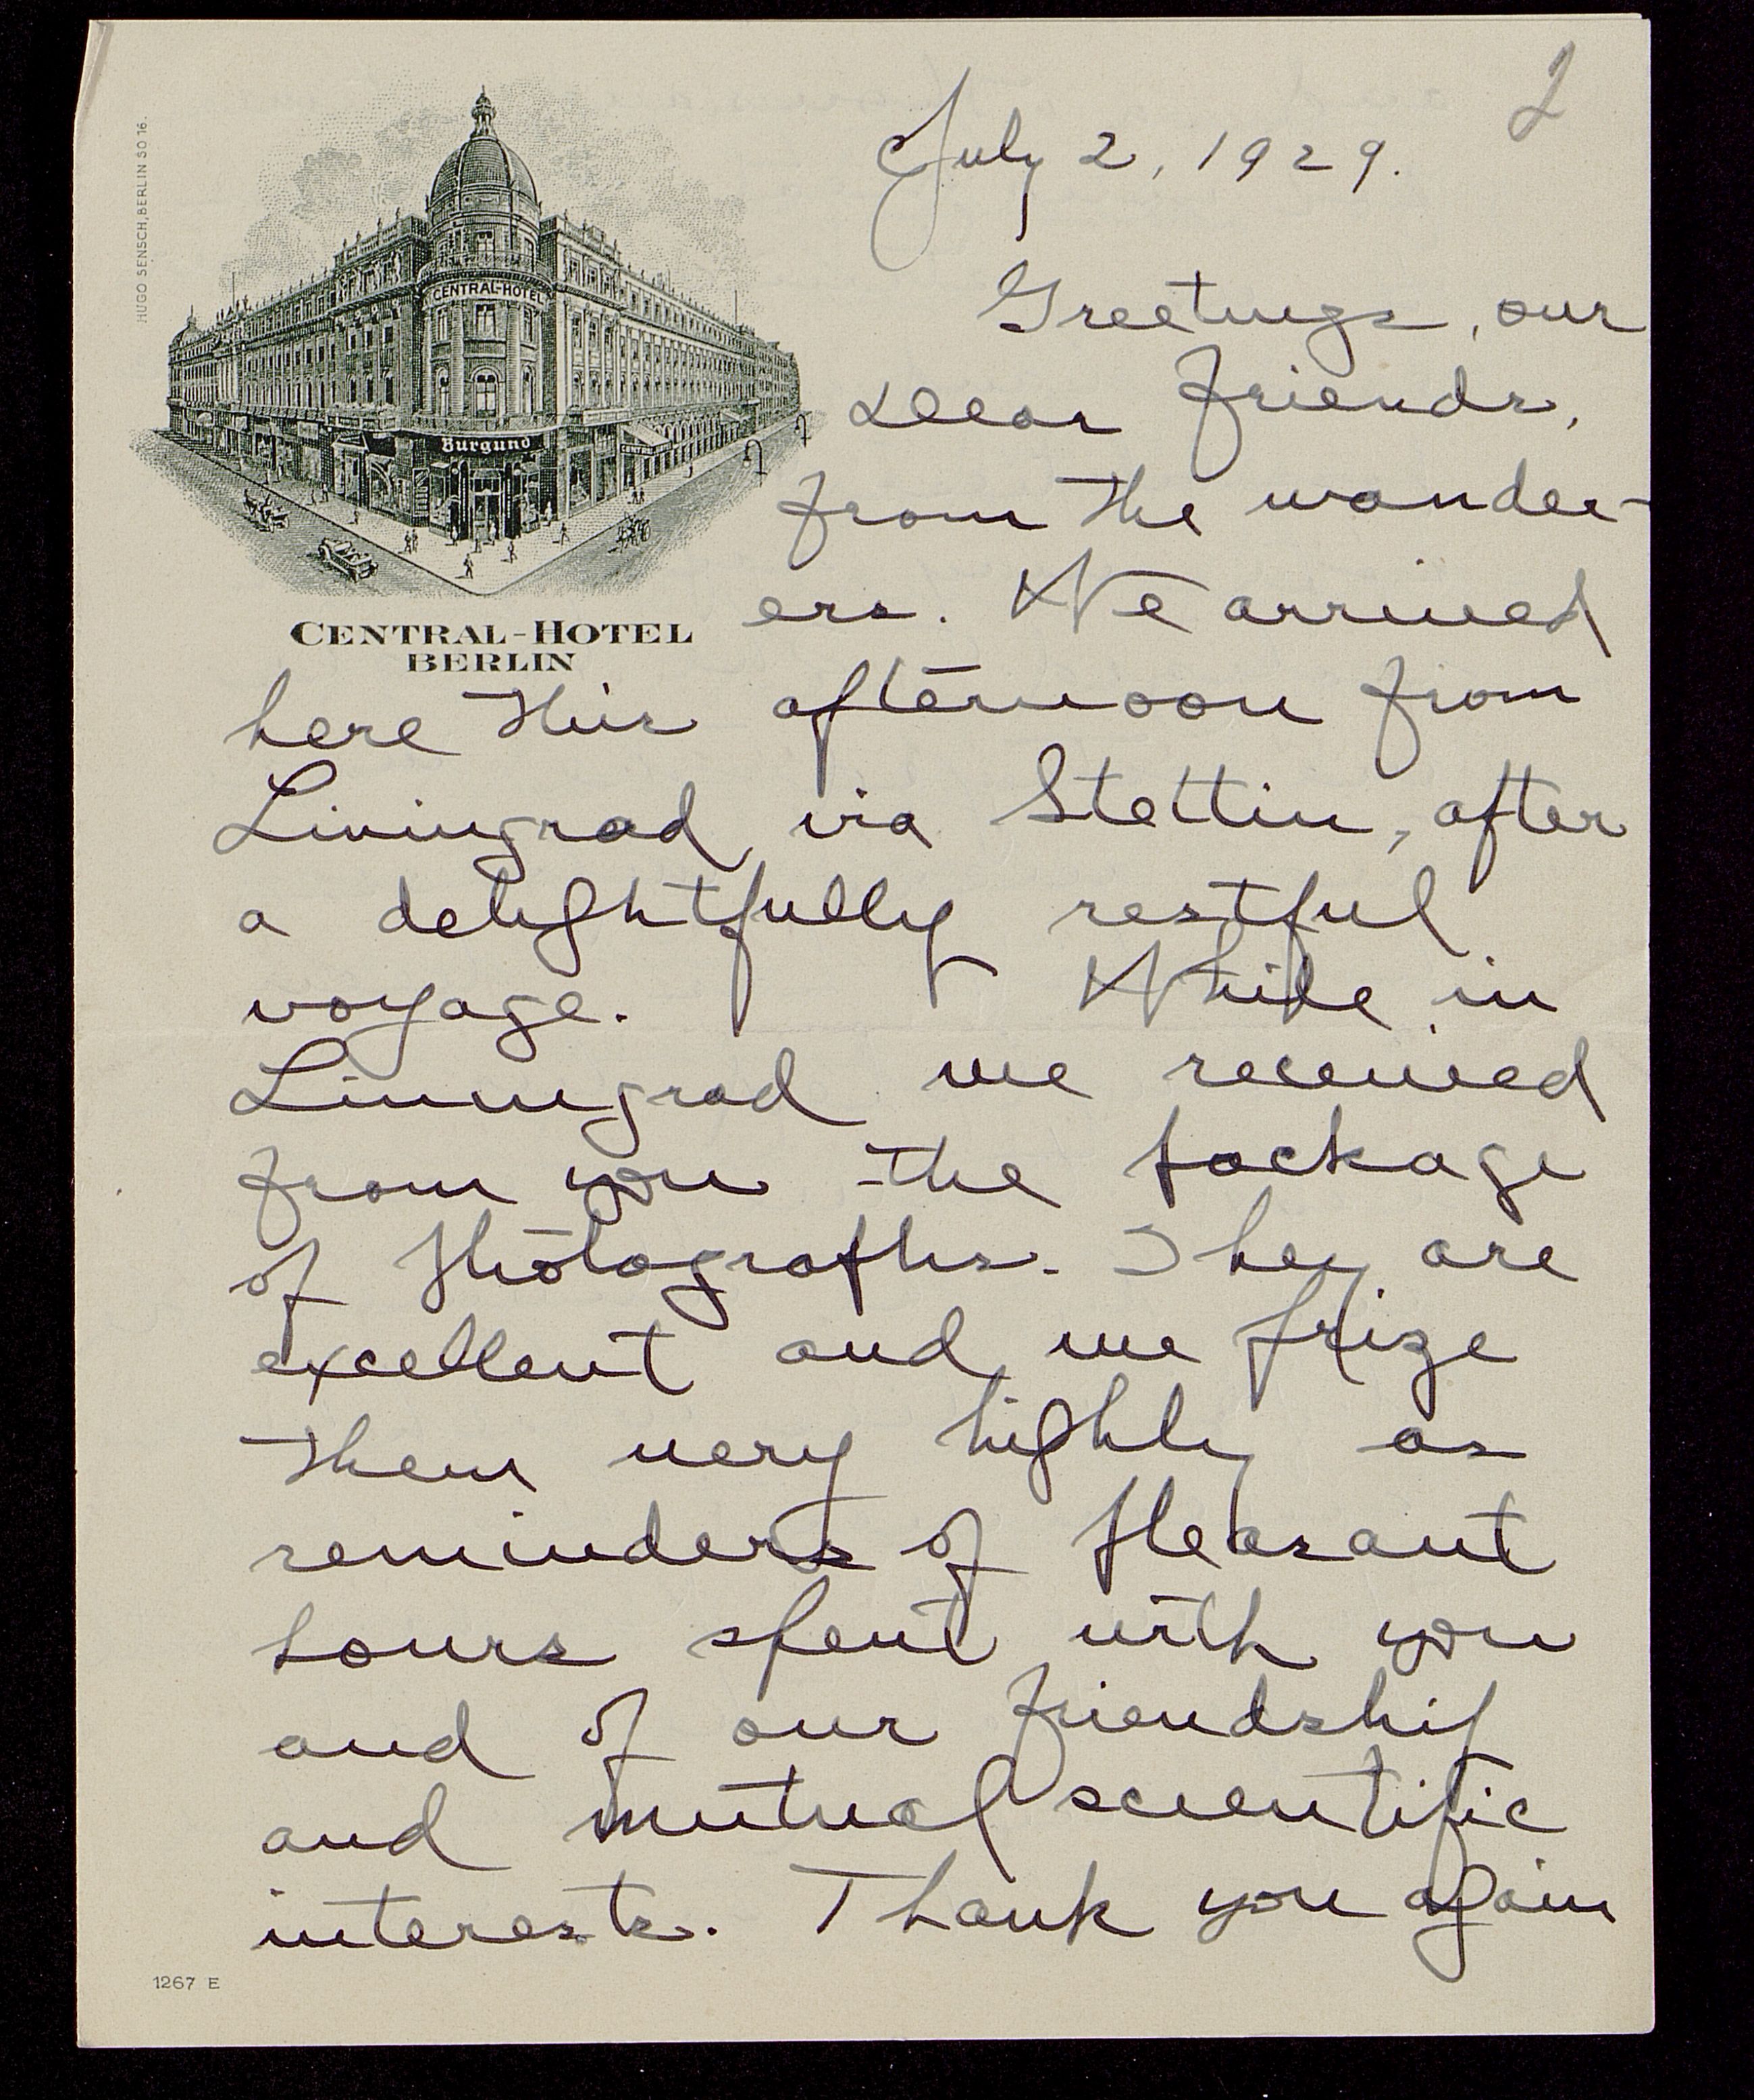 2
HUGO SENSCH, BERLIN SO 16.
July 2, 1929.
CENTRAL-HOTEL
Burgund
CENTRAL
CENTRAL-HOTEL
BERLIN
Greetings, our
dear friends,
from the wander-
ers. We arrived
here this afternoon from
Liningrad via Stettin, after
a delightfully restful
voyage. While in
Liningrad we received
from you the package
of photographs. They are
excellent and we prize
them very highly as
reminders of pleasant
hours spent with you
and of our friendship
and mutual scientific
interests. Thank you again
1267 E